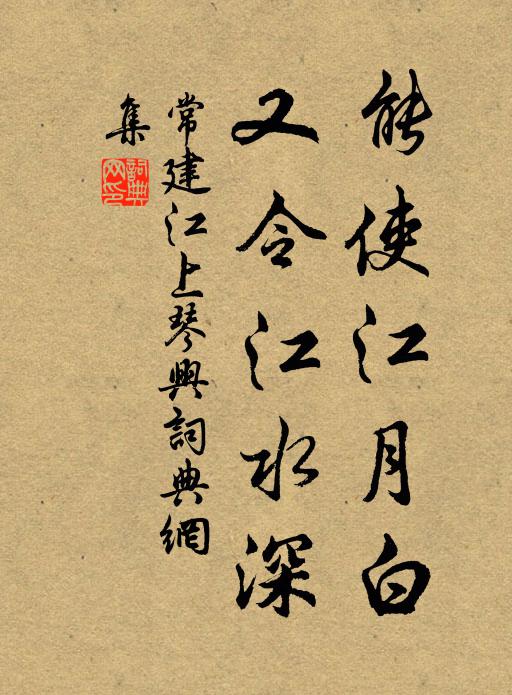 能使江月白
又令江水深
常建江上琴興詞典網
集
詞典
网印